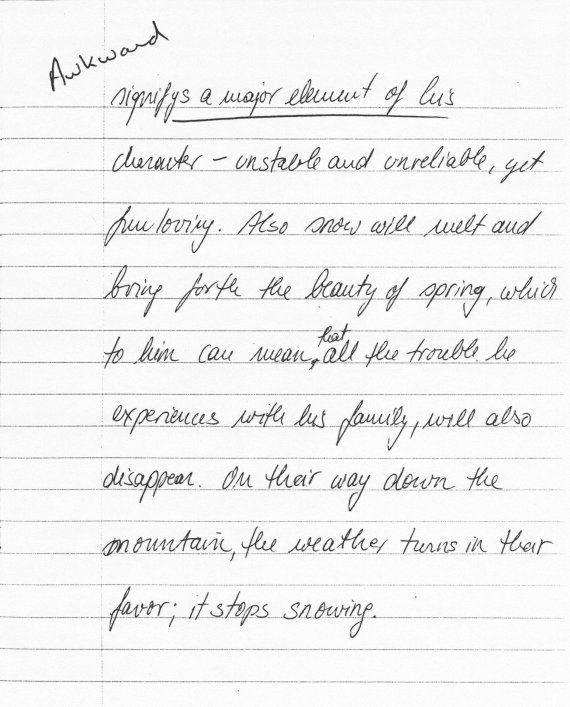 Awkward
signifys a major element of his
character - unstable and unreliable, yet
fun loving. Also snow will melt and
bring forth the beauty of spring, which
to him can mean, that all the trouble he
experiences with his family, will also
disappear. On their way down the
mountain, the weather turns in their
favor; it stops snowing.